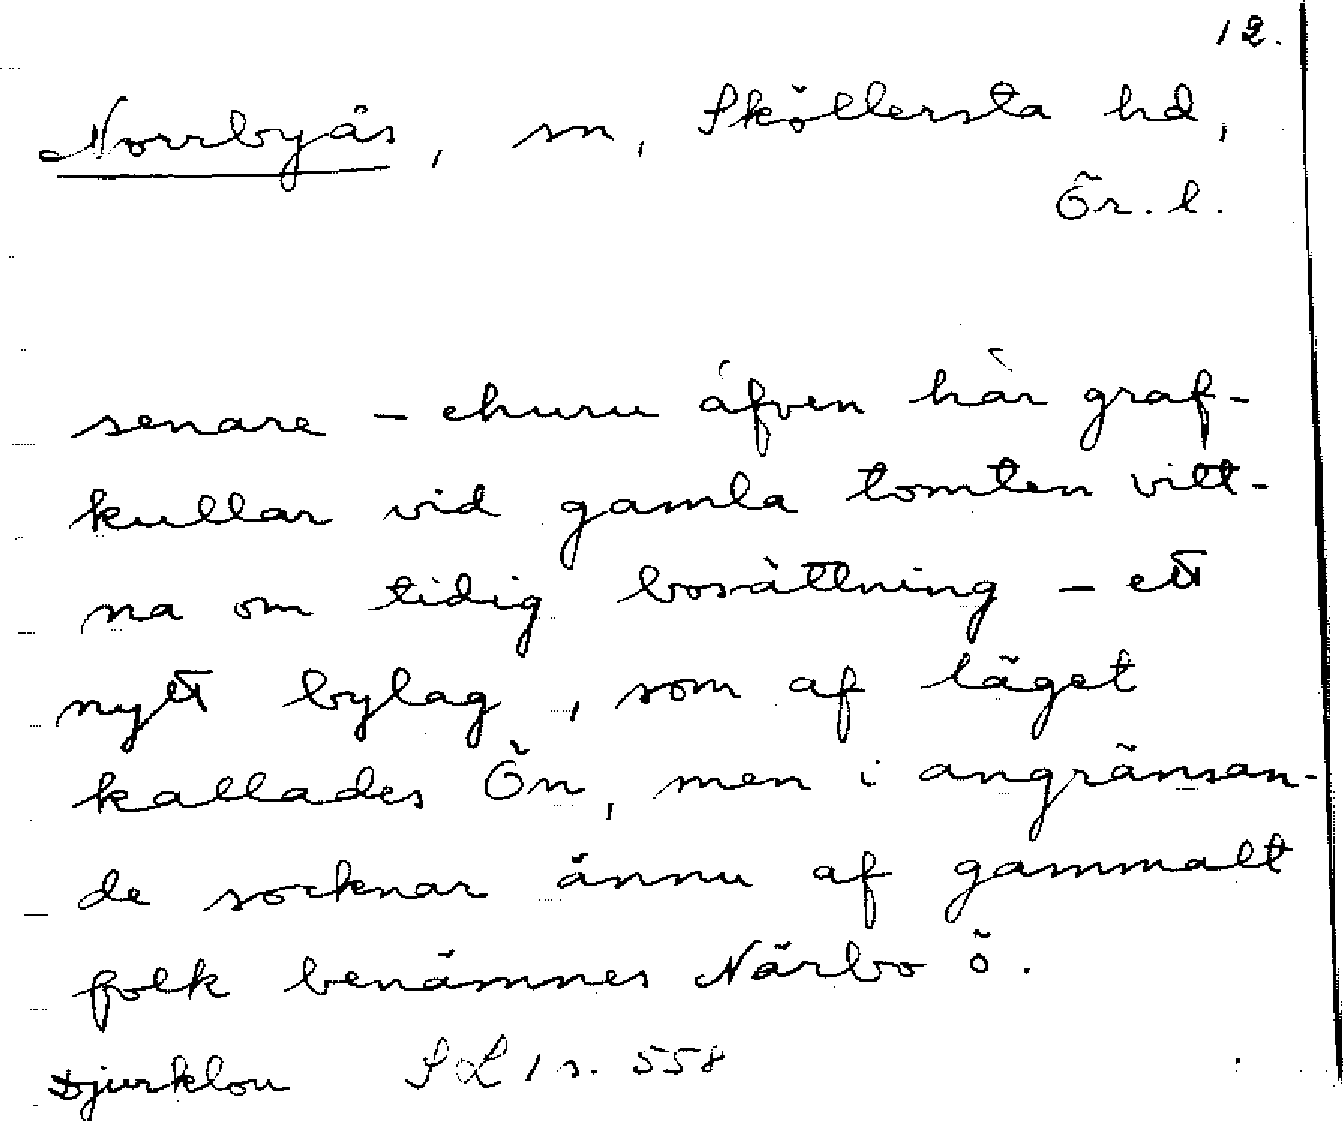 12.
Norrbyås, sn, Sköllersta hd,
Ör. l.
senare - ehuru äfven här graf-
kullar vid gamla tomten vitt-
na om tidig bosättning - ett
nytt bylag, som af läget
kallades Ön, men i angränsan-
de socknar ännu af gammalt
folk benämnes Närbo ö.
Djurklou SL 1 s. 558